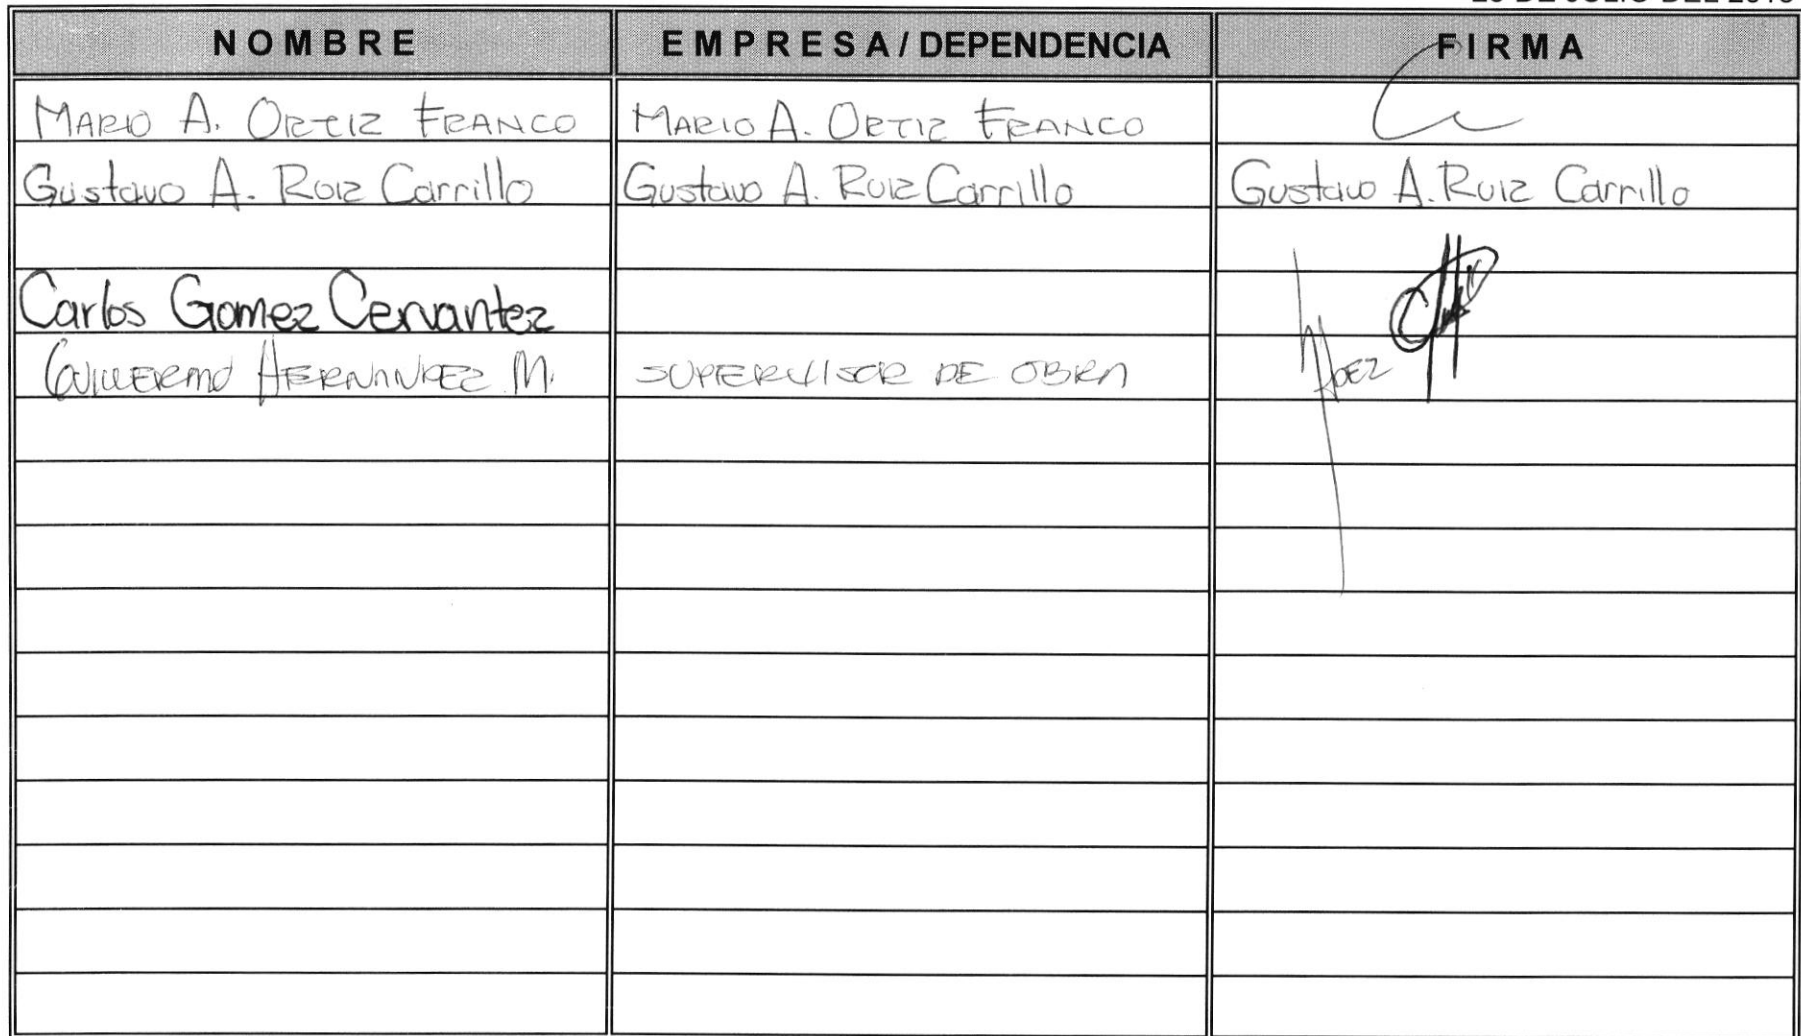 NOMBRE EMPRESA / DEPENDENCIA FIRMA
MARIO A. ORTIZ FRANCO MARIO A. ORTIZ FRANCO
Gustavo A. Ruiz Carrillo Gustavo A. Ruiz Carrillo Gustavo A. Ruiz Carrillo
Carlos Gomez Cervantez
GUILLERMO HERNANDEZ M. SUPERVISOR DE OBRA